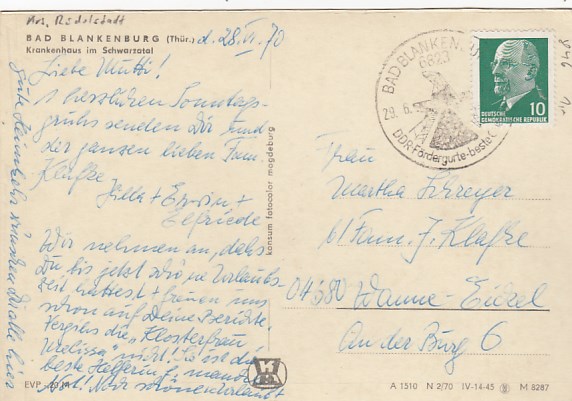 Krs. Rudolstadt
BAD BLANKENBURG (Thür.) d. 28.VI.70
Krankenhaus im Schwarzatal
Liebe Mutti!
1 herzlichen Sonntags-
gruß senden Dir und
der ganzen lieben Fam.
Klafke
Erwin +
Elfriede
Wir nehmen an, daß
Du bis jetzt schöne Urlaubs-
zeit hattest + freuen uns
schon auf Deine Berichte.
Vergiß die „Klosterfrau
Melissa" nicht! Es ist die
beste Helferin f. manche
Not! Noch schönen Urlaub
Gute Heimkehr wünschen Dir alle hier
EVP -,20 M
konsum fotocolor magdeburg
BAD BLANKENBU
6823
29.6.
DDR-Fördergurte-beste
DEUTSCHE
DEMOKRATISCHE REPUBLIK
10
Frau
Martha Schreyer
b/ Fam. J. Klafke
04380 Wanne-Eickel
An der Burg 6
A 1510 N 2/70 IV-14-45 M 8287